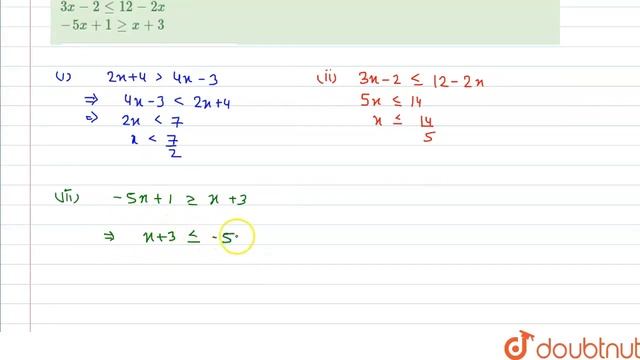 3x − 2 ≤ 12 − 2x
−5x + 1 ≥ x + 3
(i) 2x+4 > 4x − 3
⇒ 4x−3 < 2x+4
⇒ 2x < 7
x < 7/2
(ii) 3x−2 ≤ 12−2x
5x ≤ 14
x ≤ 14/5
(iii) −5x+1 ≥ x +3
⇒ x+3 ≤ −5
doubtnut